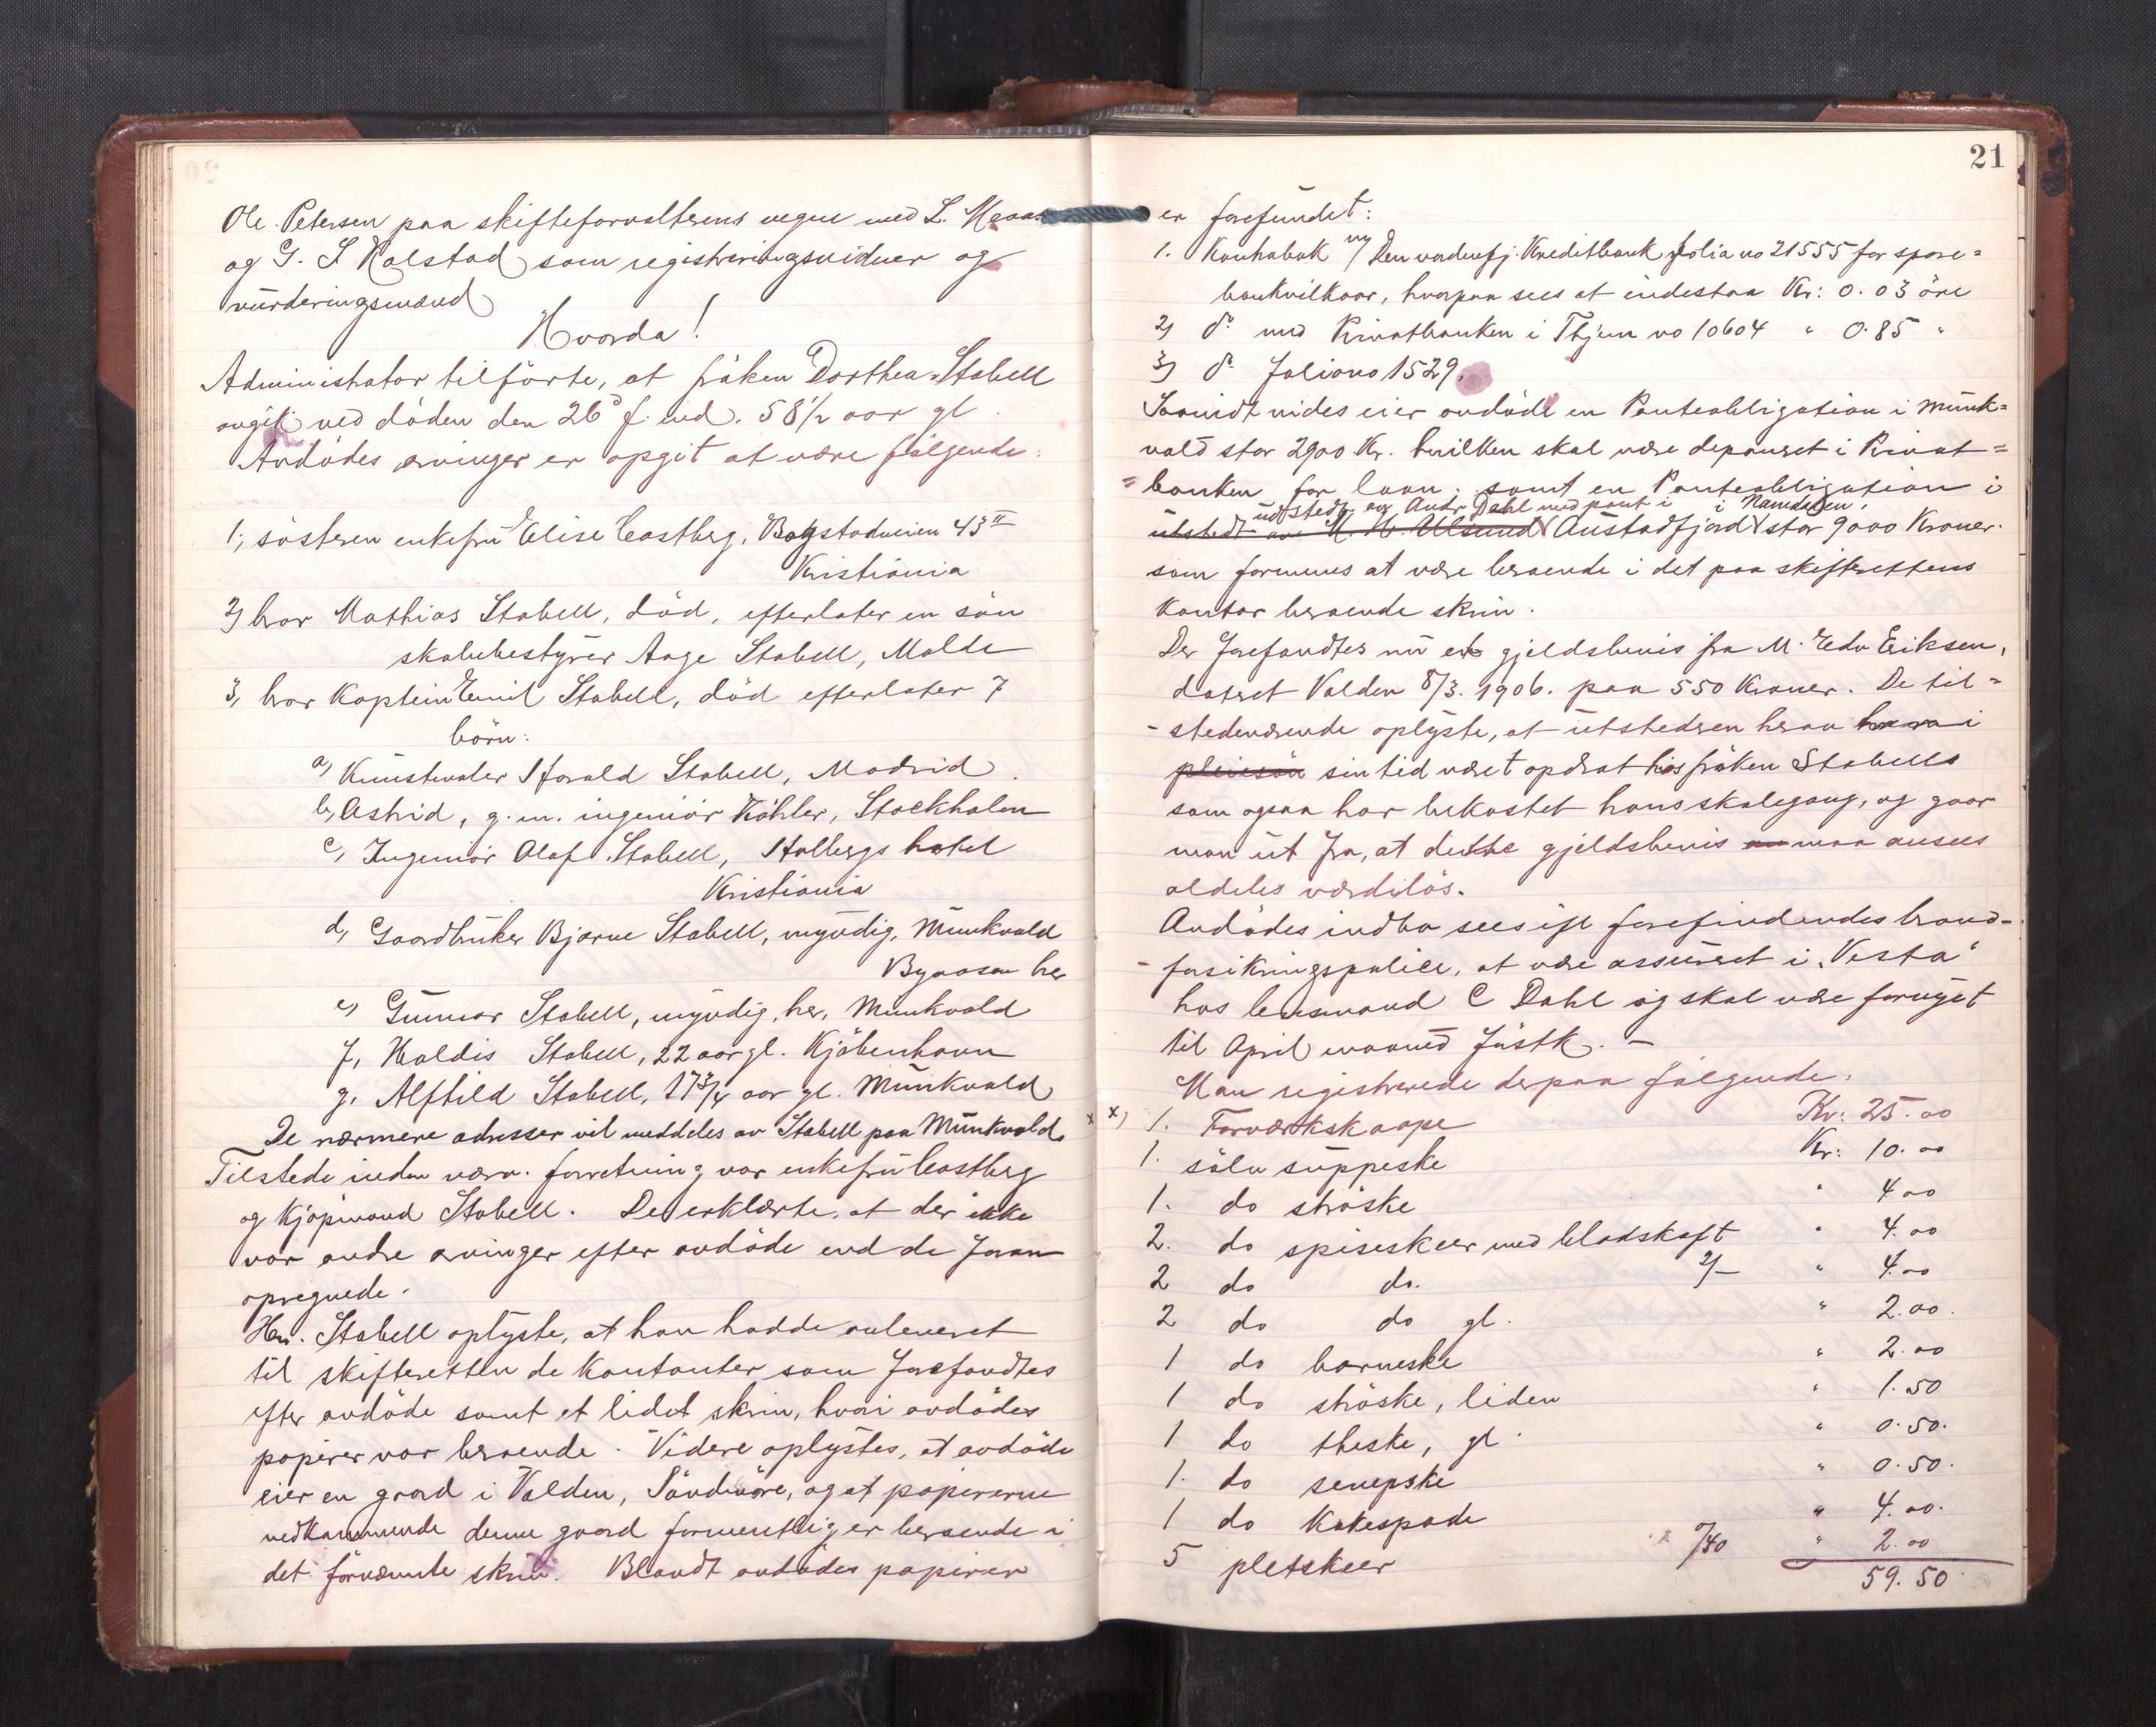 Ole Petersen paa skifteforvalterens vegne med L. Moaas
og G. S Kolstad som registreringsvidner og
vurderingsmænd
Hvorda!
Administrator tilförte, at fröken Dorthea Stabell
avgik ved döden den 26d f. md. 58 1/2 aar gl.
Avdödes arvinger er opgit at være fölgende:
1, sösteren enkefru Elise Castberg, Bogstadveien 43 II
Kristiania
2) bror Mathias Stabell, död, efterlater en sön
skolebestyrer Aage Stabell, Molde
3, bror Kaptein Emil Stabell, död efterlater 7
börn:
a) Kunstmaler Harald Stabell, Madrid.
b, Astrid, g. m. ingeniör Köhler, Stockholm
c, Ingeniör Olaf Stabell, Holbergs hotel
Kristiania
d, Gaardbruker Bjarne Stabell, myndig, Munkvold
Byaasen her
e) Gunnar Stabell, myndig, her, Munkvold
f, Haldis Stabell, 22 aar gl. Kjöbenhavn
g. Alfhild Stabell, 17 3/4 aar gl. Munkvold
De nærmere adresser vil meddeles av Stabell paa Munkvold.
Tilstede under nærv. forretning var enkefru Castberg
og Kjöpmand Stabell. De erklærte, at der ikke
var andre arvinger efter avdöde end de foran
opregnede.
Hr. Stabell oplyste, at han hadde avleveret
til skifteretten de Kontanter som forefandtes
efter avdöde samt et lidet skrin, hvori avdödes
papirer var beroende. Videre oplystes, at avdöde
eier en gaard i Volden, Söndmöre, og at papirerne
vedkommende denne gaard formentlig er beroende i
det förnævnte skrin. Blandt avdödes papirer
21
er forefundet:
1. Kontrabok m/ Den nordenfj. Kreditbank folio no 21555 for spare=
bankvilkaar, hvorpaa sees at indestaa Kr: 0.03 öre
2) do med Privatbanken i Thjem no 10604 " 0.85 "
3) do Folio no 1529.
Saavidt vides eier avdöde en Panteobligation i Munk=
vold stor 2900 Kr. hvilken skal være deponeret i Privat=
=banken for laan: samt en Panteobligation i
udstedt av Andr Dahl med pant i i Namdalen.
utstedt av M. H. Ulsund Austadfjord stor 9000 Kroner.
som formenes at være beroende i det paa skifterettens
Kontor beroende skrin.
Der forefandtes nu et gjeldsbevis fra M. Edv Eriksen,
dateret Volden 8/3. 1906. paa 550 Kroner. De til=
-stedeværende oplyste, at utstederen herav
pleiesön sin tid været opdrat hos fröken Stabells
som ogsaa har bekostet hans skolegang, og gaar
man ut fra, at dette gjeldsbevis maa ansees
aldeles værdilös.
Avdödes indbo sees ifl forefindendes brand-
-forsikringspolice, at være assureret i "Vesta"
hos lensmand C Dahl og skal være fornyet
til April maaned
Man registrerede derpaa fölgende:
x x) 1. Forværkskaape Kr: 25.00
1. sölv suppeske Kr: 10.00
1. do ströske " 4.00
2. do spiseskeer med bladskaft " 4.00
2 do do. 2/- " 4.00
2 do do gl. " 2.00.
1 do barneske " 2.00
1 do ströske, liden " 1.50
1 do theske, gl. " 0.50.
1. do senepske " 0.50.
1 do Kakespade " 4.00.
5 pletskeer /40 " 2.00
59.50